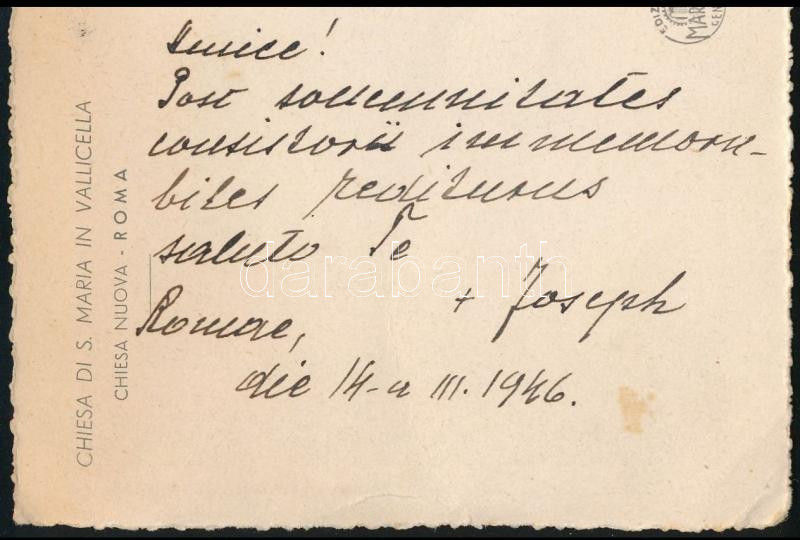 Amice!
Post sollemnitates
consistorii immemora-
biles rediturus
saluto Te
+ Joseph
Romae,
die 14-a III. 1946.
CHIESA DI S. MARIA IN VALLICELLA
CHIESA NUOVA - ROMA
EDIZ
MAR
GEN
darabanth